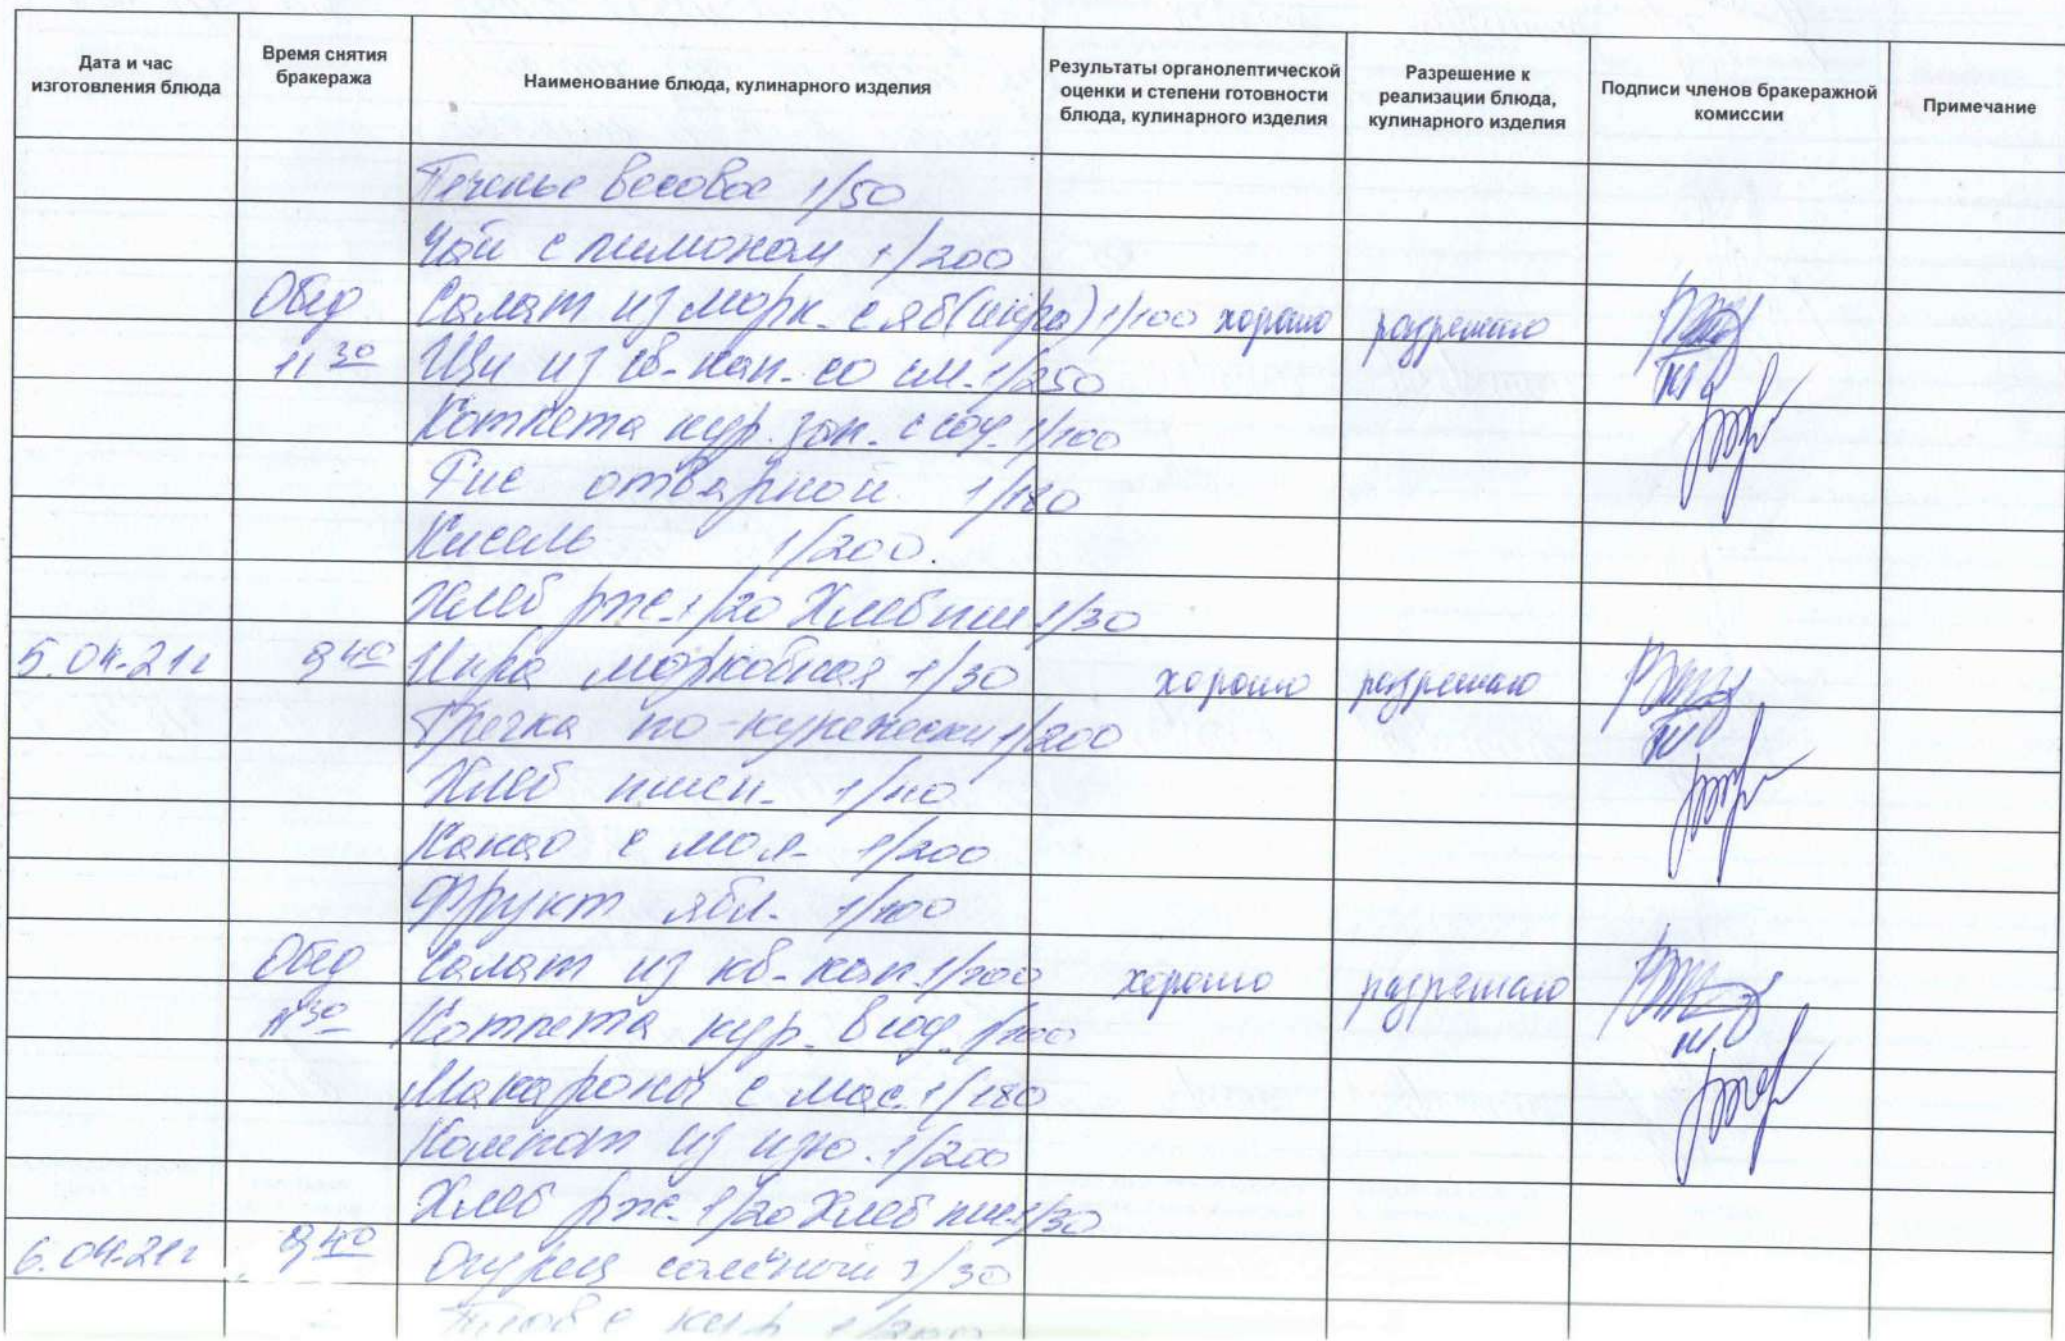 Дата и час изготовления блюда
Время снятия бракеража
Наименование блюда, кулинарного изделия
Результаты органолептической оценки и степени готовности блюда, кулинарного изделия
Разрешение к реализации блюда, кулинарного изделия
Подписи членов бракеражной комиссии
Примечание
Печенье весовое 1/50
Чай с лимоном 1/200
Обед Салат из морк. с яб (икра) 1/100 хорошо разрешаю
11 30 Щи из св. кап. со см. 1/250
Котлета кур. зап. с соу. 1/100
Рис отварной 1/180
Кисель 1/200.
Хлеб рж. 1/20 Хлеб пше 1/30
5.04.21г 9 40 Икра морковная 1/30 хорошо разрешаю
Гречка по-купечески 1/200
Хлеб пшен. 1/40
Какао с мол. 1/200
Фрукт ябл. 1/100
Обед Салат из кв. кап. 1/100 хорошо разрешаю
11 30 Котлета кур. в соу. 1/100
Макароны с мас. 1/180
Компот из изю. 1/200
Хлеб рж. 1/20 Хлеб пше 1/30
6.04.21г 9 40 Огурец солёный 1/30
Плов с кур 1/200